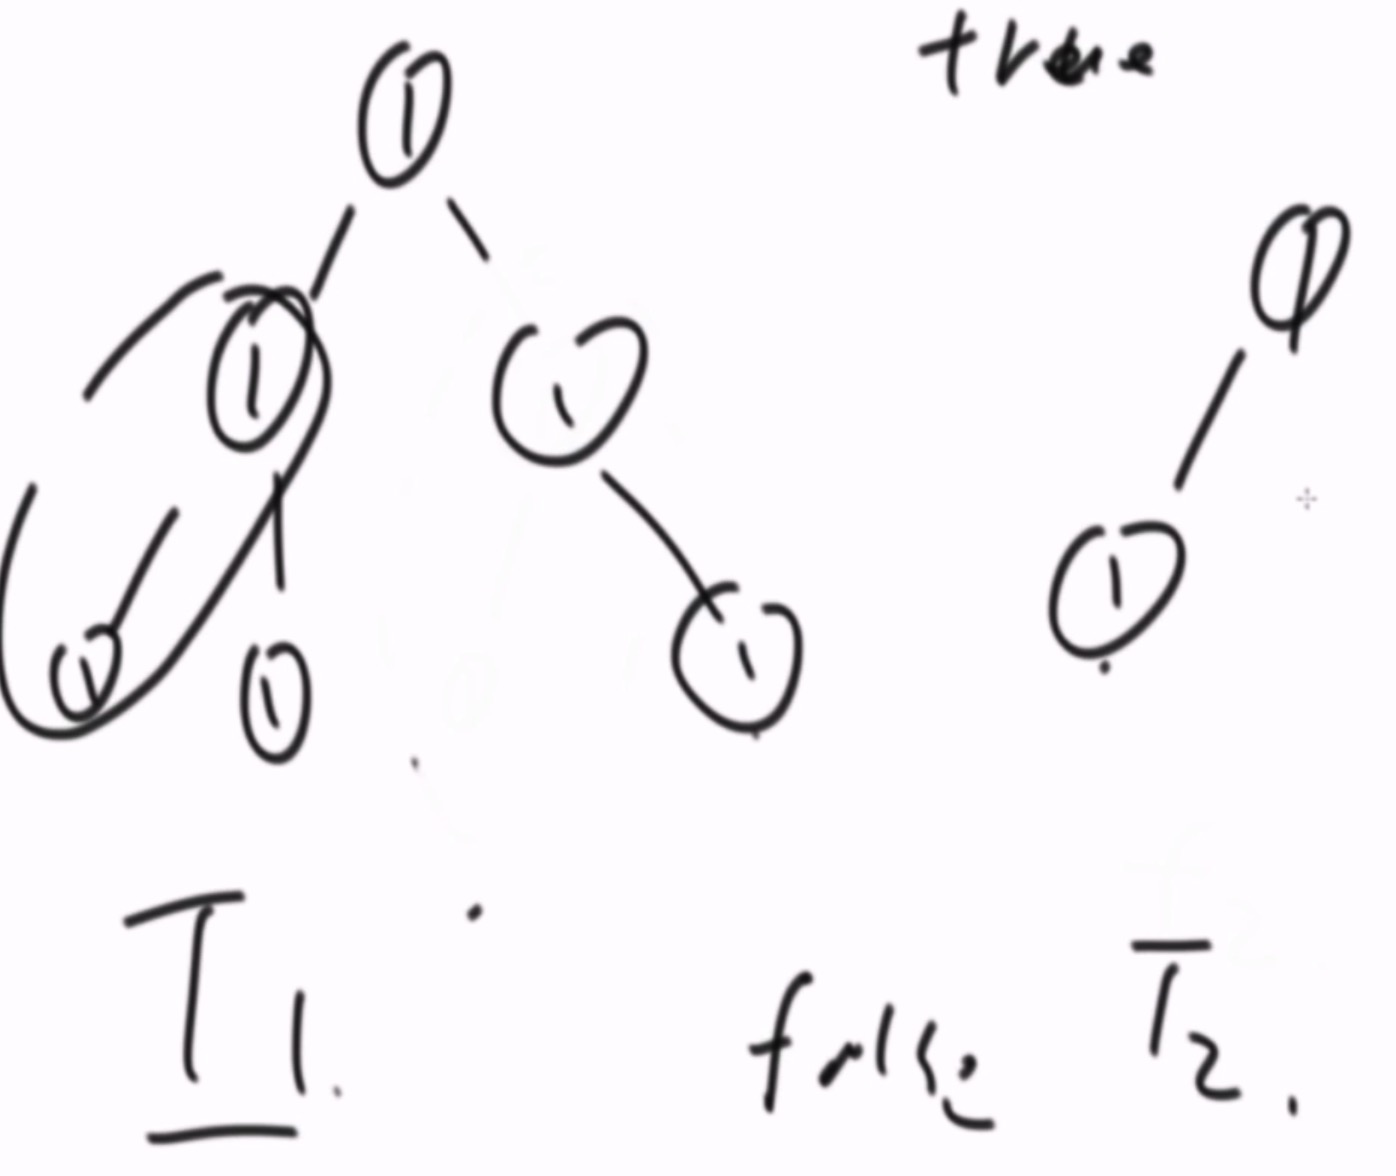 true
1
1
1
1
1
1
1
1
T1
false
T2